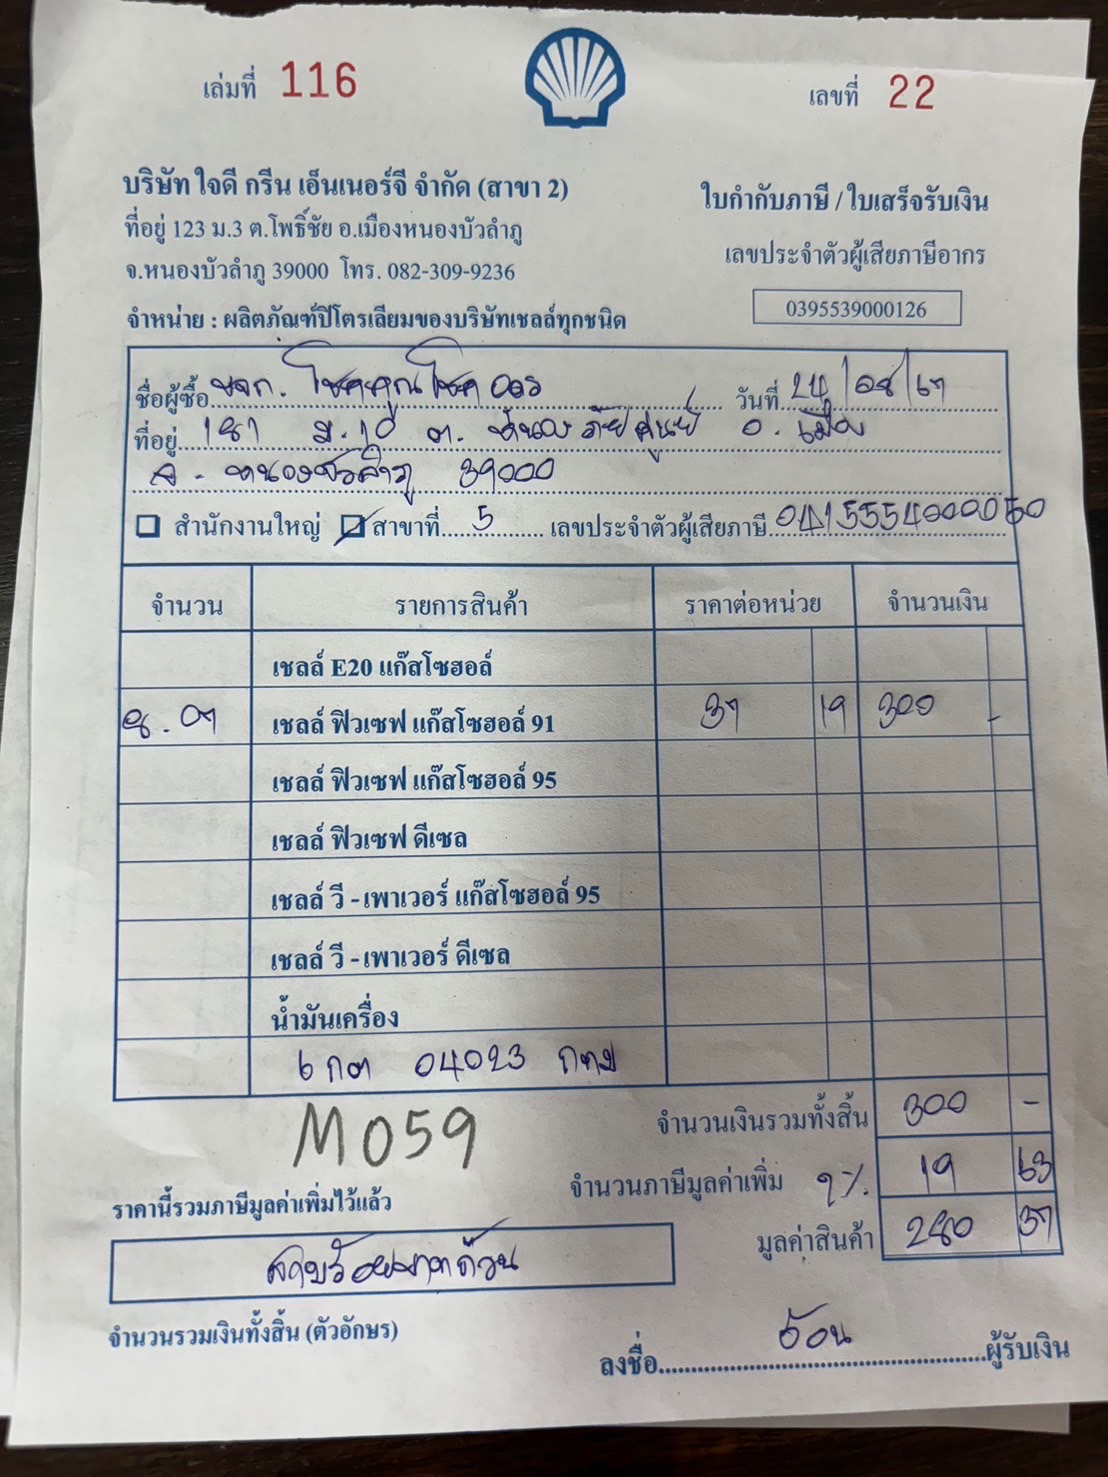 เล่มที่ 116
เลขที่ 22
บริษัท ใจดี กรีน เอ็นเนอร์จี จำกัด (สาขา 2)
ใบกำกับภาษี / ใบเสร็จรับเงิน
ที่อยู่ 123 ม.3 ต.โพธิ์ชัย อ.เมืองหนองบัวลำภู
เลขประจำตัวผู้เสียภาษีอากร
จ.หนองบัวลำภู 39000 โทร. 082-309-9236
0395539000126
จำหน่าย : ผลิตภัณฑ์ปิโตรเลียมของบริษัทเชลล์ทุกชนิด
ชื่อผู้ซื้อ หจก. โชคคูณโชค วันที่ 24/08/67
ที่อยู่ 181 ม.10 ต. หนองภัยศูนย์ อ. เมือง
จ. หนองบัวลำภู 39000
สำนักงานใหญ่ สาขาที่ 5 เลขประจำตัวผู้เสียภาษี
จำนวน รายการสินค้า ราคาต่อหน่วย จำนวนเงิน
เชลล์ E20 แก๊สโซฮอล์
8.07 เชลล์ ฟิวเซฟ แก๊สโซฮอล์ 91 37 19 300 -
เชลล์ ฟิวเซฟ แก๊สโซฮอล์ 95
เชลล์ ฟิวเซฟ ดีเซล
เชลล์ วี - เพาเวอร์ แก๊สโซฮอล์ 95
เชลล์ วี - เพาเวอร์ ดีเซล
น้ำมันเครื่อง
6 กต 04023 กทม
M059
จำนวนเงินรวมทั้งสิ้น 300 -
จำนวนภาษีมูลค่าเพิ่ม 7% 19 63
ราคานี้รวมภาษีมูลค่าเพิ่มไว้แล้ว
มูลค่าสินค้า 280 37
สามร้อยบาทถ้วน
จำนวนรวมเงินทั้งสิ้น (ตัวอักษร)
ลงชื่อ ผู้รับเงิน